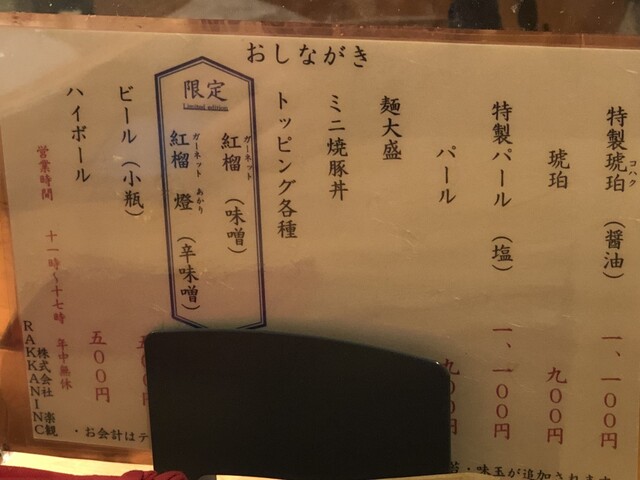 おしながき
特製琥珀（醤油） 一、一００円
コハク
琥珀 九００円
特製パール（塩） 一、一００円
パール 九００円
麺大盛
ミニ焼豚丼
トッピング各種
限定
Limited edition
紅榴（味噌）
ガーネット
紅榴 燈（辛味噌）
ガーネット あかり
ビール（小瓶）
ハイボール 五００円
営業時間 十一時〜十七時 年中無休
株式会社 楽観
RAKKANINC
・お会計はテ
・味玉が追加されます